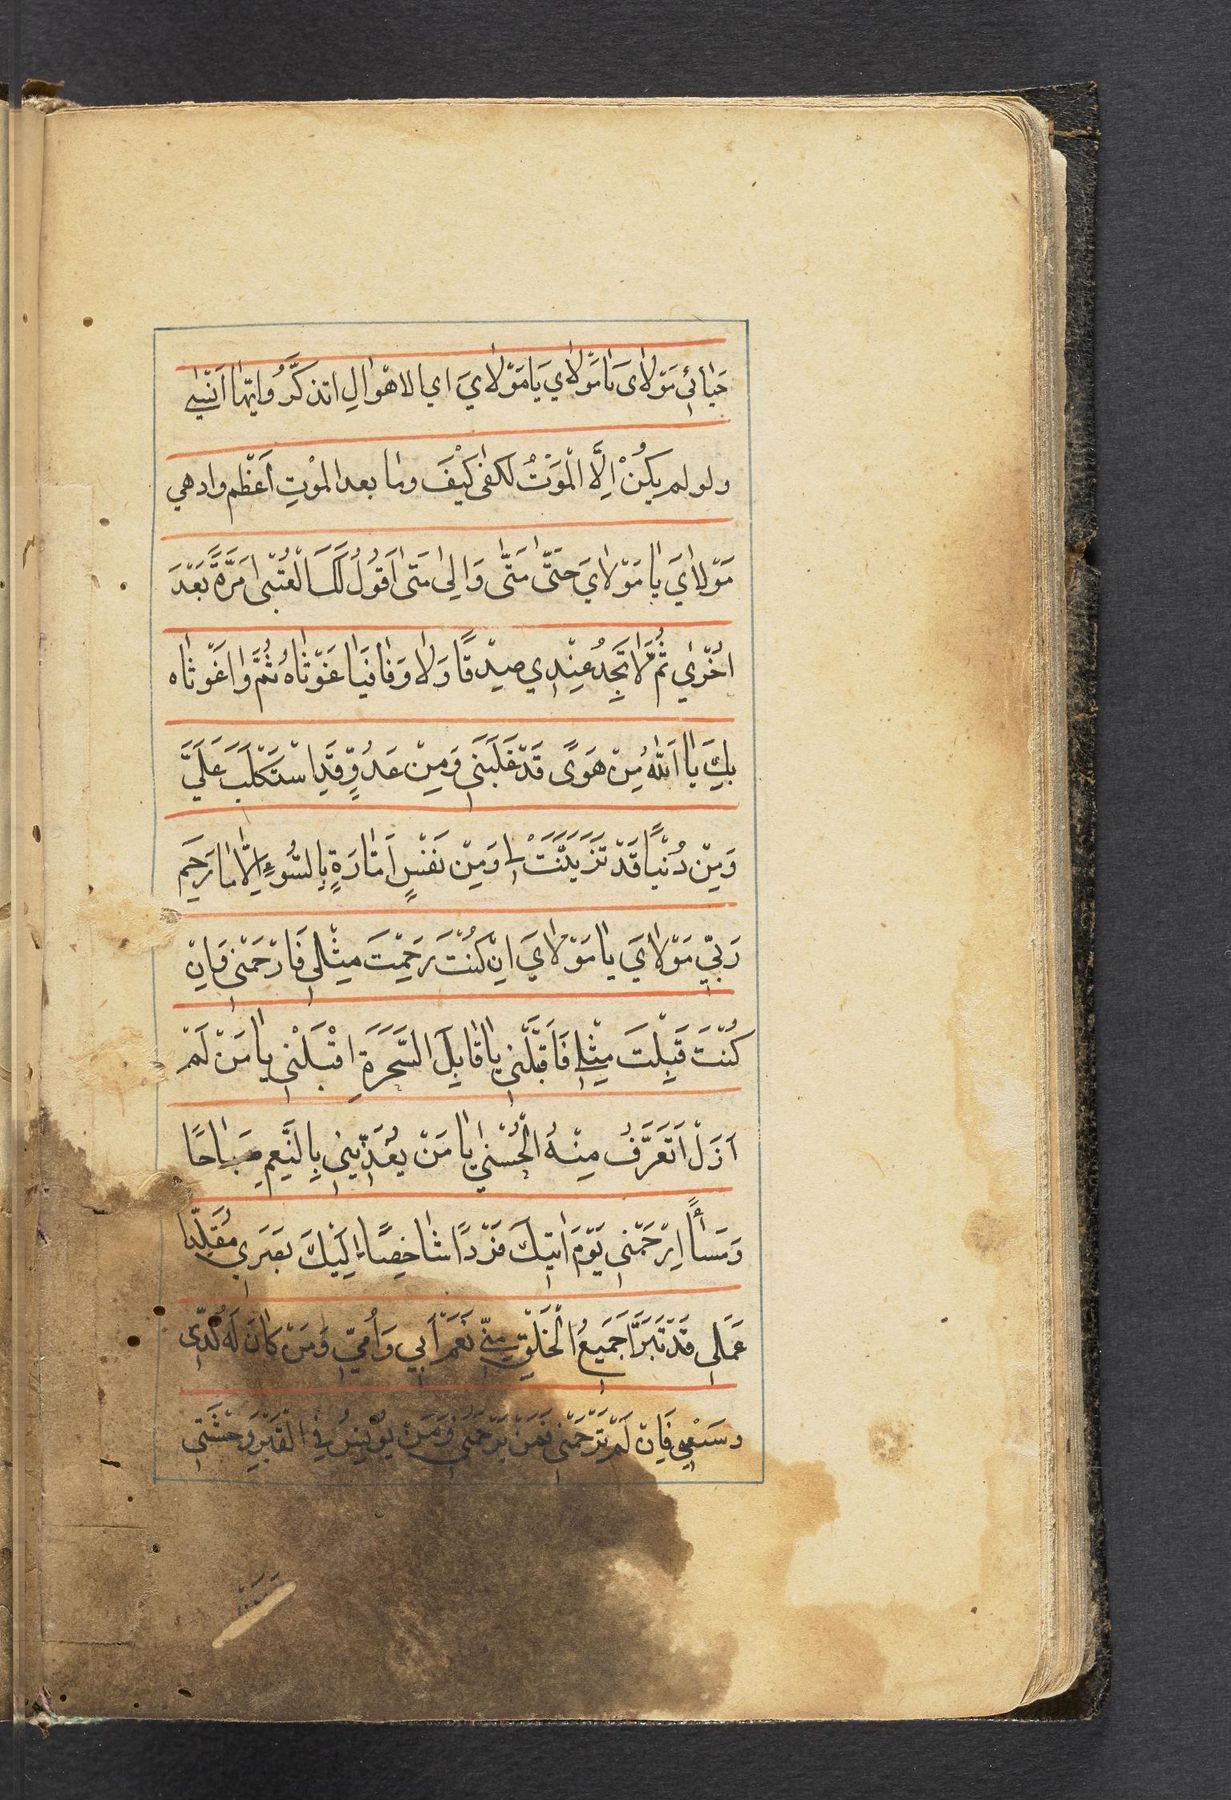 حَيَائِي مَوْلَايَ يَا مَوْلَايَ يَا مَوْلَايَ اي الاهْوَالِ اتذكَّرُ وايّها اَنْسٰي
ولو لم يكُنْ اِلَّا الْمَوْتُ لكفىٰ كَيْفَ وما بعد المَوْتِ اَعْظَم وادهي
مَوْلَايَ يَا مَوْلَايَ حَتّىٰ مَتّىٰ وَاِلىٰ مَتىٰ اَقُولُ لَكَ الْعُتْبىٰ مَرَّةً بَعْدَ
اُخْرىٰ ثُمَّ لَا تَجِدُ عِنْدِي صِدْقًا وَلَا وَفَا فَيَا غَوْثَاهُ ثُمَّ وَا غَوْثَاه
بِكَ يَا اَللهُ مِنْ هَوًى قَدْ غَلَبَنِي وَمِنْ عَدُوٍّ قَدِ اسْتَكْلَبَ عَلَيَّ
وَمِنْ دُنْيًا قَدْ تَزَيَّنَتْ لِي وَمِنْ نَفْسٍ اَمَّارَةٍ بِالسُّوءِ اِلَّا مَا رَحِمَ
رَبِّي مَوْلَايَ يَا مَوْلَايَ اِنْ كُنْتَ رَحِمْتَ مِثْلِي فَارْحَمْنِي وَاِنْ
كُنْتَ قَبِلْتَ مِثْلِي فَاقْبَلْنِي يَا قَابِلَ السَّحَرَةِ اقْبَلْنِي يَا مَنْ لَمْ
اَزَلْ اَتَعَرَّفُ مِنْهُ الْحُسْنىٰ يَا مَنْ يُغَذِّينِي بِالنَّعِيمِ صَبَاحًا
وَمَسَأً اِرْحَمْنِي يَوْمَ اتيكَ فَرْدًا شَاخِصًا اِلَيْكَ بَصَرِي مُقَلَّدًا
عَمَلِي قَدْ تَبَرَّأَ جَمِيعُ الْخَلْقِ مِنِّي نَعَمْ اَبِي وَاُمِّي وَمَنْ كَانَ لَهُ كَدِّى
وسَعْيِي فَاِنْ لَمْ تَرْحَمْنِي فَمَنْ يَرْحَمُنِي وَمَنْ يُونِسُ فِي الْقَبْرِ وَحْشَتِي